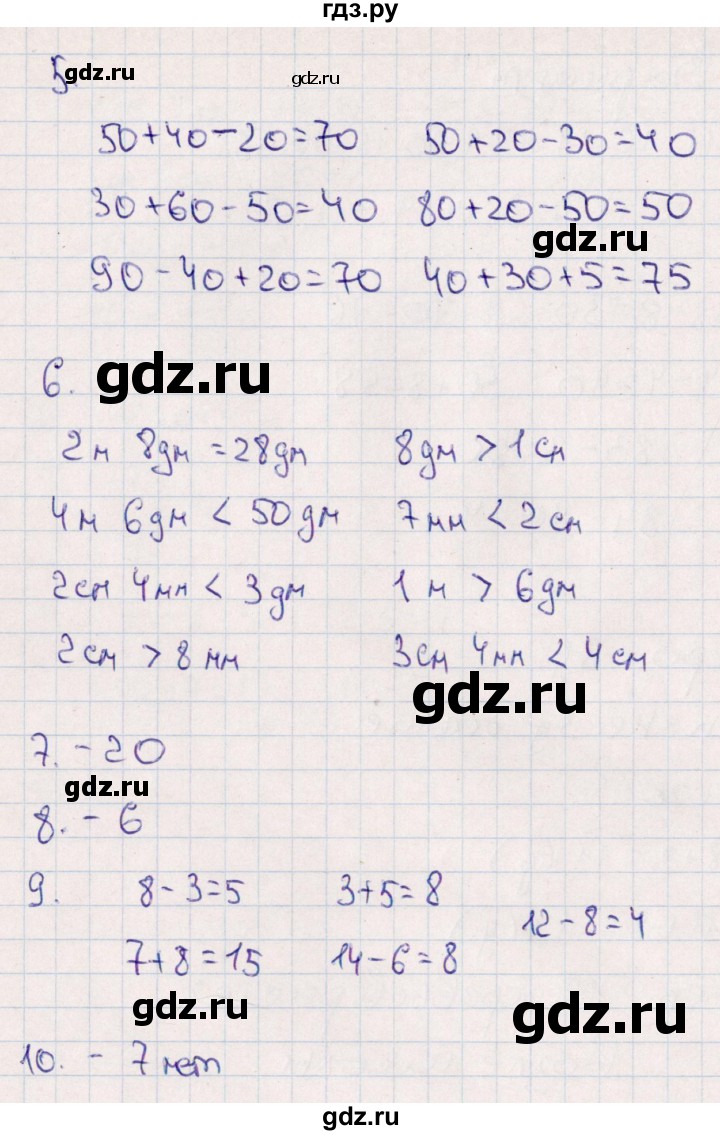 гдз.ру
5.
gdz.ru
gdz.ru
50+40-20=70 50+20-30=40
30+60-50=40 80+20-50=50
gdz.ru
90-40+20=70 40+30+5=75
6.
gdz.ru
2м 8дм =28дм 8дм > 1см
4м 6дм < 50дм 7мм < 2см
2см 4мм < 3дм 1м > 6дм
2см > 8мм 3см 4мм < 4см
gdz.ru
7. - 20
gdz.ru
8. - 6
9. 8-3=5 3+5=8 12-8=4
7+8=15 14-6=8
gdz.ru
gdz.ru
10. - 7 лет
gdz.ru